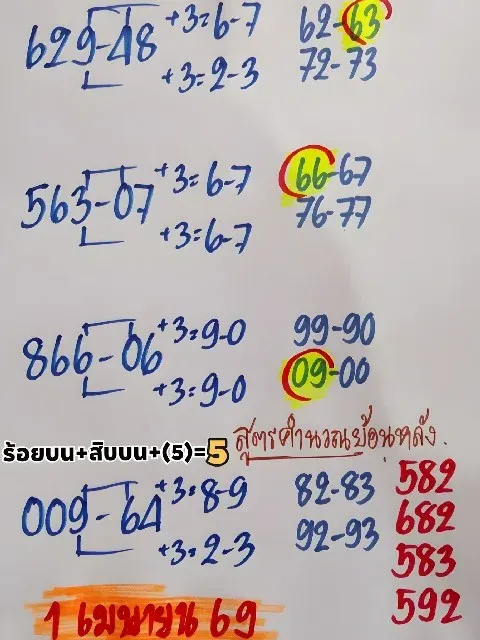 629-48 +3=6-7 62-63
+3=2-3 72-73
563-07 +3=6-7 66-67
+3=6-7 76-77
866-06 +3=9-0 99-90
+3=9-0 09-00
สูตรคำนวณย้อนหลัง.
ร้อยบน+สิบบน+(5)=5
009-64 +3=8-9 82-83 582
+3=2-3 92-93 682
583
1 เมษายน 69 592